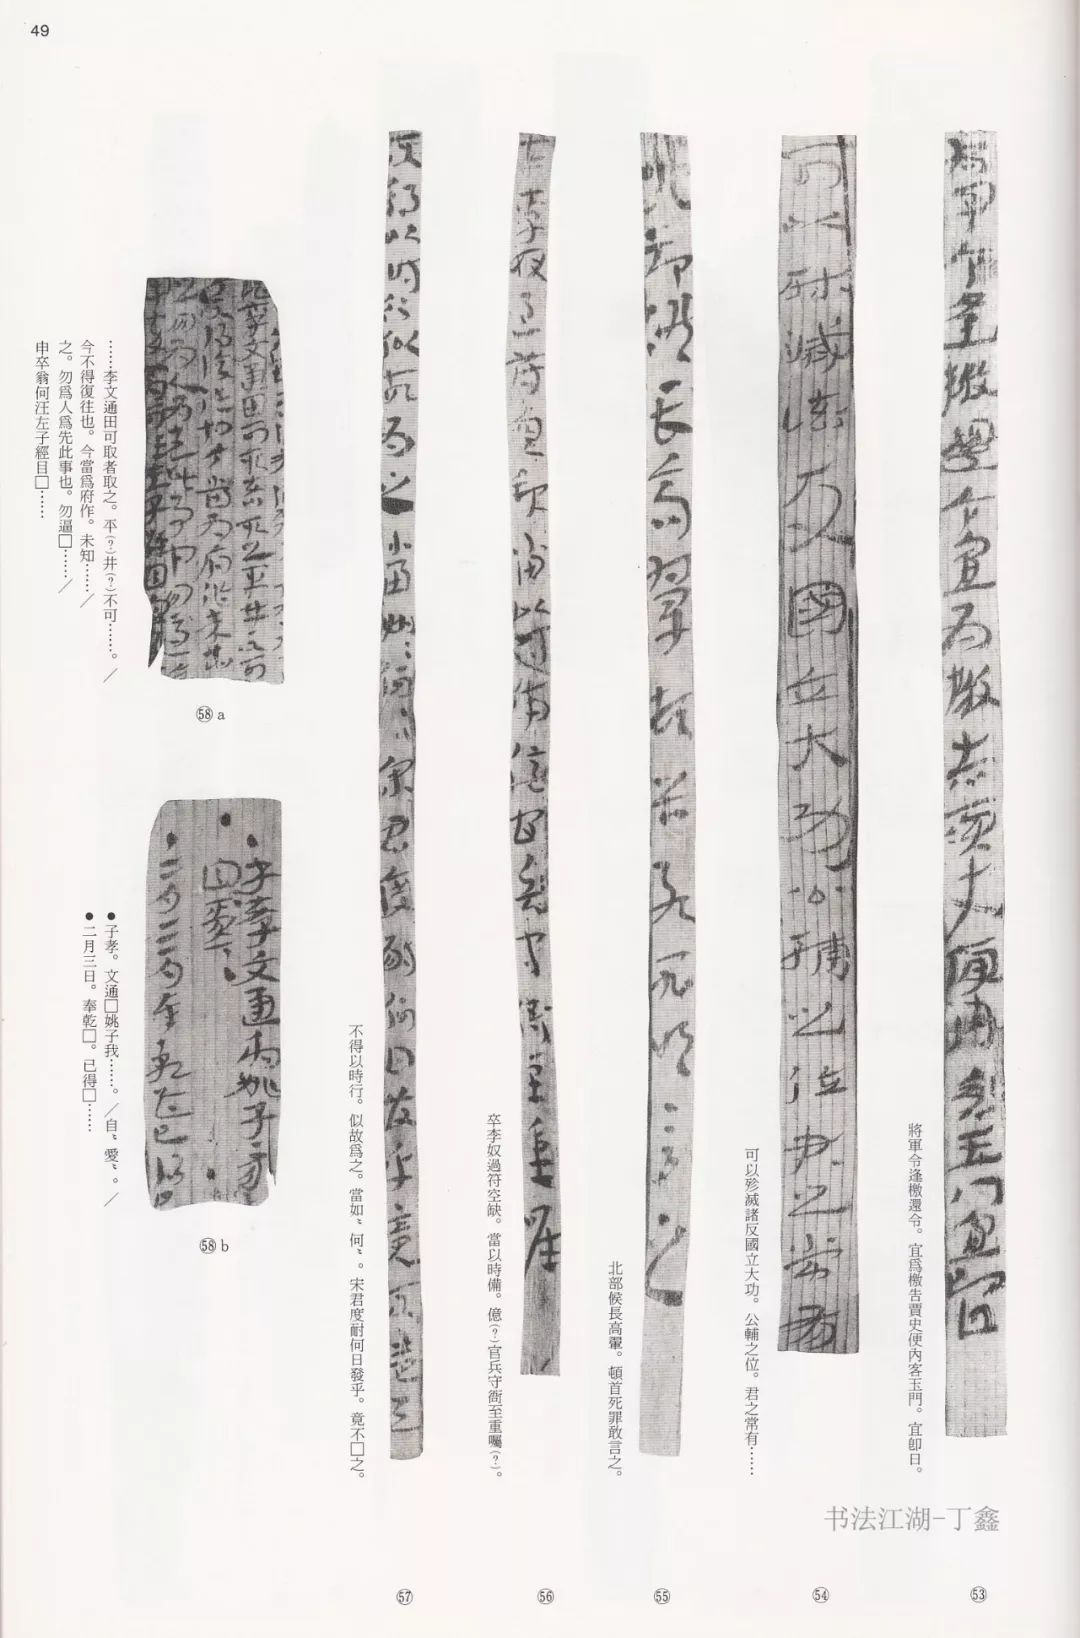 49
將軍令逢檄還令。宜爲檄告賈史便內客玉門。宜卽日。
53
可以殄滅諸反國立大功。公輔之位。君之常有……
54
北部候長高鞏。頓首死罪敢言之。
55
卒李奴過符空缺。當以時備。億(?)官兵守衙至重囑(?)。
56
不得以時行。似故爲之。當如〻何〻。宋君度耐何日發乎。竟不□之。
57
……李文通田可取者取之。平(?)井(?)不可……。／
今不得復往也。今當爲府作。未知……／
之。勿爲人爲先此事也。勿逼□……／
申卒翁何汪左子經目□……
58 a
●子孝。文通□姚子我……。／自〻愛〻。／
●二月三日。奉乾□。已得□……
58 b
书法江湖-丁鑫